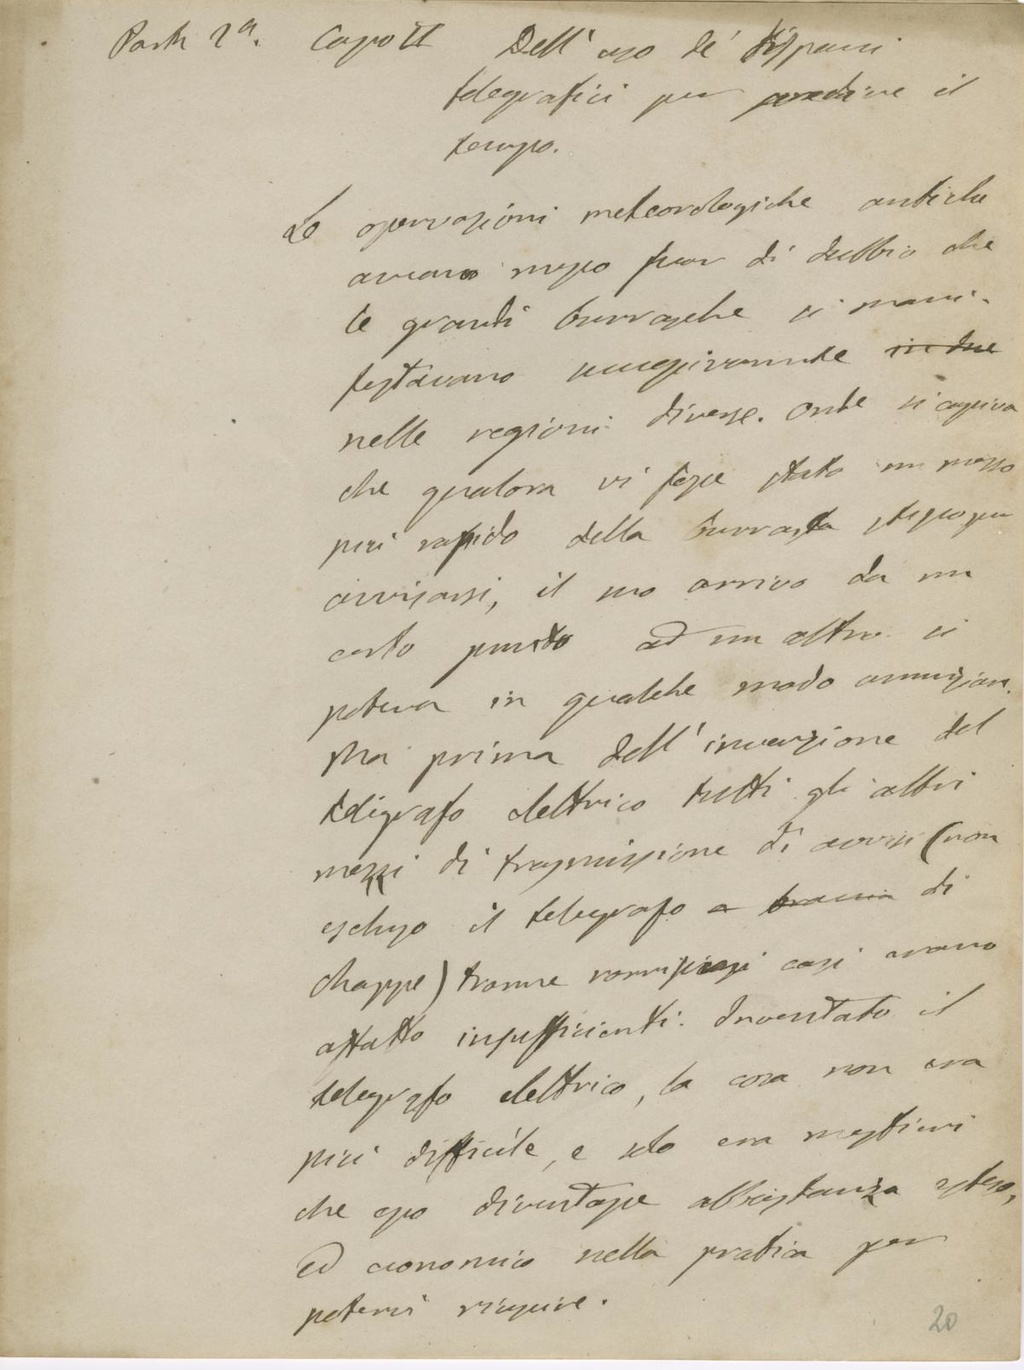 Parte 2ª. Capo II Dell' uso de' dispacci
telegrafici per predire il
tempo.
Le osservazioni meteorologiche antiche
aveano messo fuor di dubbio che
le grandi burrasche si mani-
festavano successivamente in due
nelle regioni diverse. Onde si capiva
che qualora vi fosse stato un mezzo
più rapido della burrasca stessa per
avvisarsi, il suo arrivo da un
certo punto ad un altro si
poteva in qualche modo annunziare.
Ma prima dell' invenzione del
telegrafo elettrico tutti gli altri
mezzi di trasmissione di avvisi (non
escluso il telegrafo a braccia di
Chappe) tranne rarissimi casi erano
affatto insufficienti. Inventato il
telegrafo elettrico, la cosa non era
più difficile, e solo era mestieri
che esso diventasse abbastanza esteso,
ed economico nella pratica per
potervi riuscire.
20